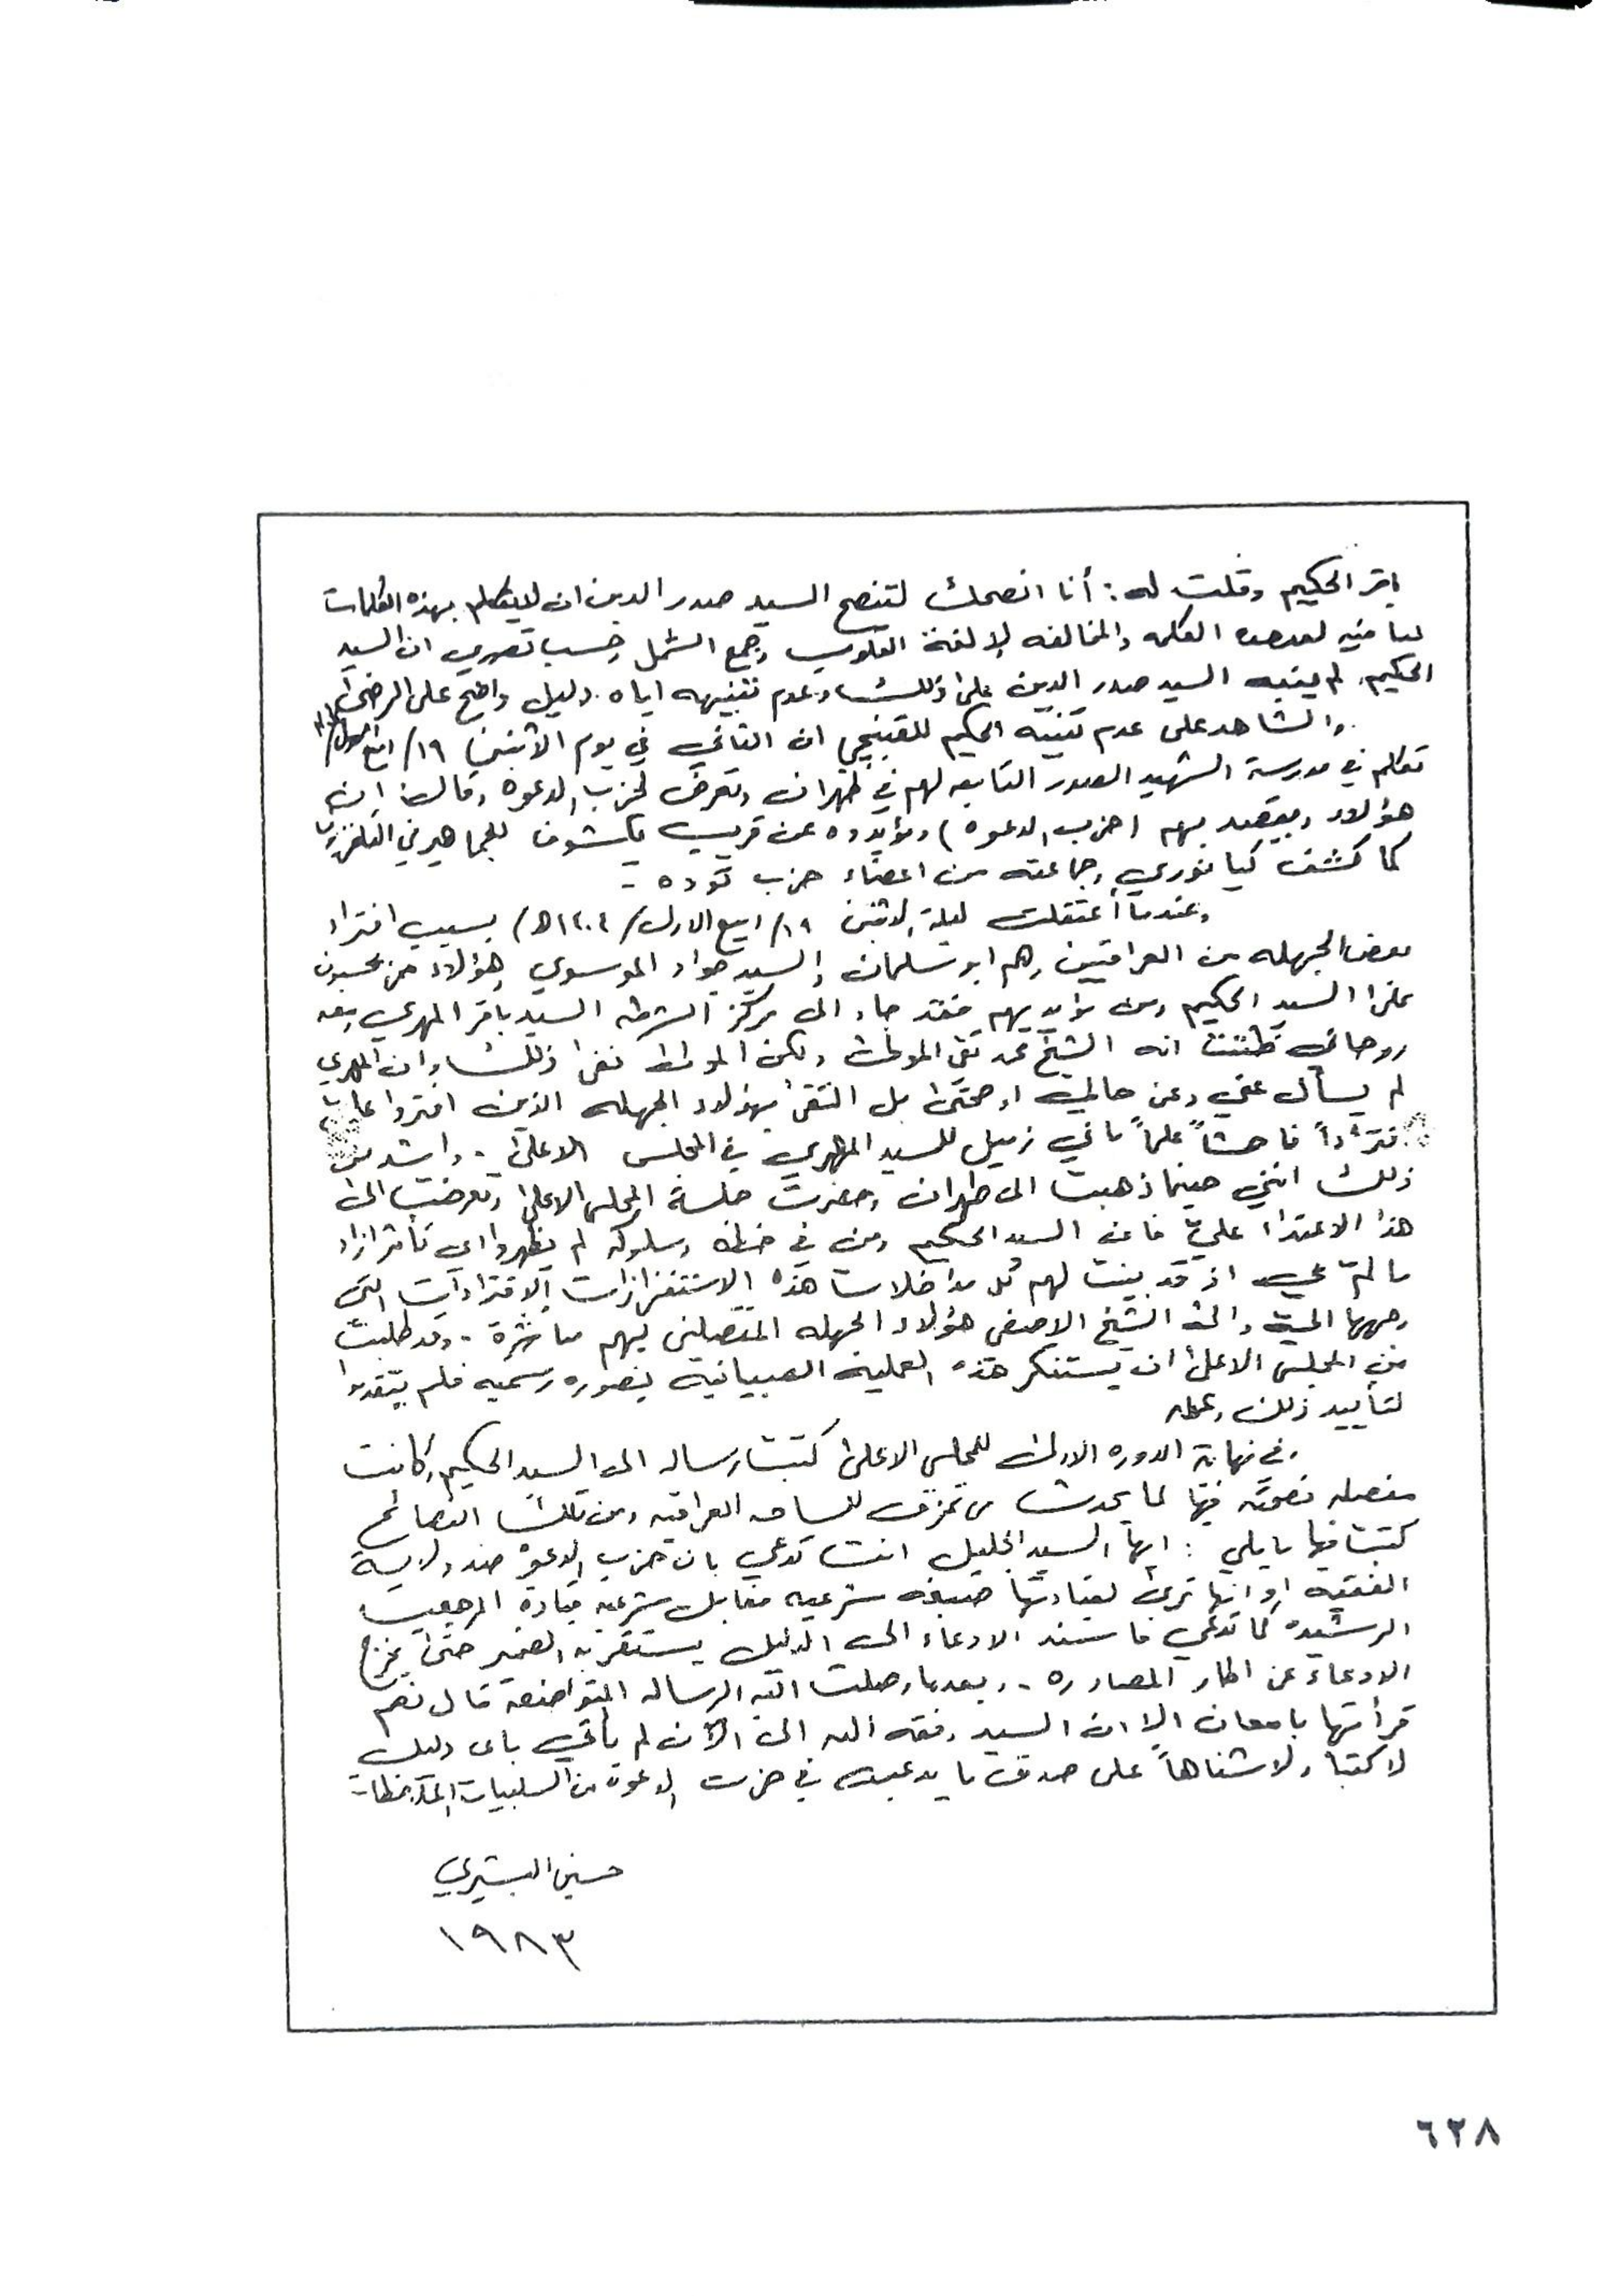 باقر الحكيم وقلت له : أنا انصحك لتنصح السيد صدر الدين ان لا يتكلم بهذه الكلمات
لوحدة الكلمه والمخالفه لإلفة القلوب وجمع الشمل وحسب تصوري ان السيد
الحكيم لم ينبه السيد صدر الدين على ذلك وعدم تنبيهه اياه دليل واضح على الرضى
والشاهد على عدم تنبيه الحكيم للقبنجي ان الثاني في يوم الاثنين ١٩/
تكلم في مدرسة الشهيد الصدر التابعه لهم في طهران وتعرض لحزب الدعوه وقال: ان
هؤلاء ويقصد بهم (حزب الدعوه) ومؤيدوه عن قريب للجماهير في التلفزيون
كما كشف كيا نوري وجماعته من اعضاء حزب توده -
وعندما أعتقلت ليلة الاثنين ١٩/ ربيع الاول/ ١٤٠٤ه/ بسبب افتراء
بعض الجهله من العراقيين وهم ابو سلمان والسيد جواد الموسوي وهؤلاء ممن يحسبون
على السيد الحكيم ومن مؤيديهم فقد جاء الى مركز الشرطه السيد باقر المهري ومعه
روحاني ظننت انه الشيخ محمد تقي المولى ولكن المولى نفى ذلك وان المهري
لم يسأل عني وعن حالي او صحتي بل التقى بهؤلاء الجهله الذين افتروا علي
افتراءاً فاحشاً علماً باني زميل للسيد المهري في المجلس الاعلى - واشد من
ذلك انني حينما ذهبت الى طهران وحضرت جلسة المجلس الاعلى وتعرضت الى
هذا الاعتداء عليّ فان السيد الحكيم ومن في خطه وسلوكه لم يظهروا اي تأثر ازاء
ما لمّ بي اذ قد بينت لهم كل مداخلات هذه الاستفزازات والافتراءات التي
وجهها اليّ والى الشيخ الاصفي هؤلاء الجهله المتصلين بهم مباشرة - وقد طلبت
من المجلس الاعلى ان يستنكر هذه العملية الصبيانية بصوره رسميه فلم يتقدموا
لتأييد ذلك وعمله
وفي نهاية الدوره الاولى للمجلس الاعلى كتبت رساله الى السيد الحكيم وكانت
مفصله نصحته فيها لما يحدث من تمزق للساحه العراقيه ومن تلك النصائح
كتبت فيها ما يلي : ايها السيد الجليل انت تدعي بان حزب الدعوة ضد ولاية
الفقيه او انها ترى لقيادتها صبغه شرعيه مقابل شرعية قيادة المرجعيه
الرشيدة كما تدعي فاسند الادعاء الى الدليل يستقر به الضمير حتى يخرج
الادعاء عن اطار المصادره - وبعدما وصلت اليه الرساله المتواضعة قال نعم
قرأتها بامعان إلا ان السيد وفقه الله الى الآن لم يأتي باي دليل
لا كتباً ولا شفاهاً على صدق ما يدعيه في حزب الدعوة من السلبيات والملاحظات
حسين البشيري
١٩٨٣
٦٢٨